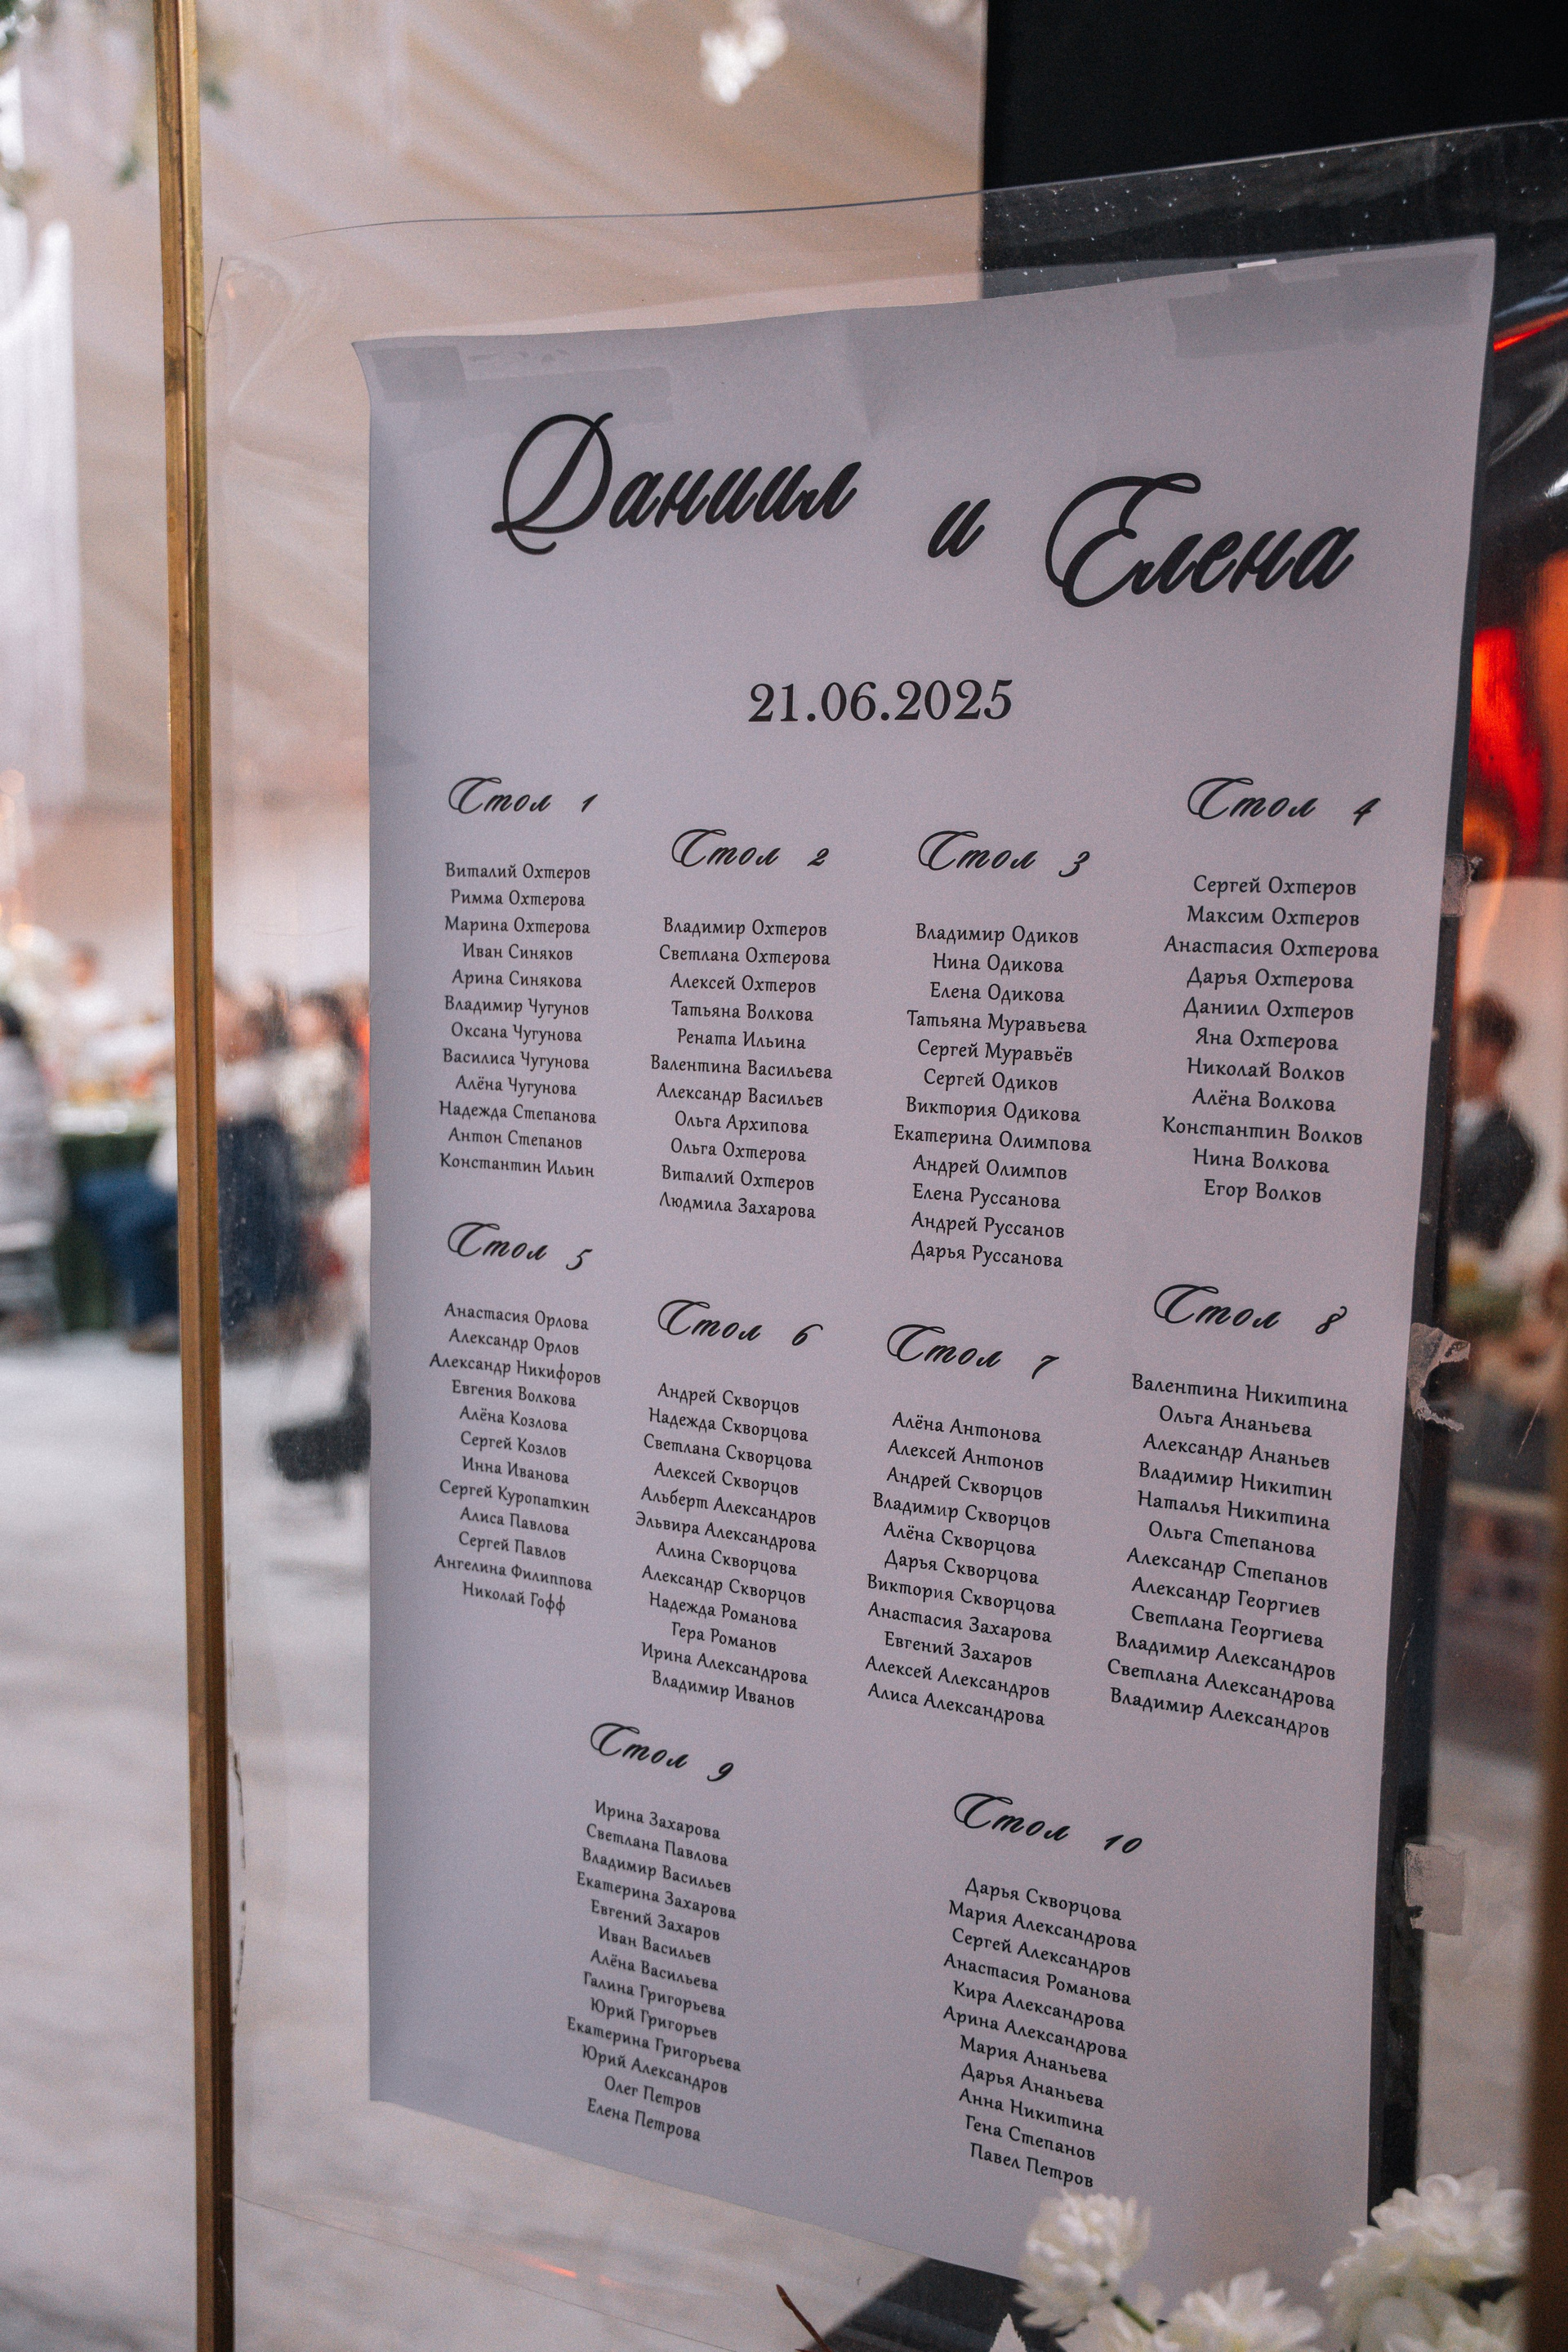 Даниил и Елена
21.06.2025
Стол 1
Виталий Охтеров
Римма Охтерова
Марина Охтерова
Иван Синяков
Арина Синякова
Владимир Чугунов
Оксана Чугунова
Василиса Чугунова
Алёна Чугунова
Надежда Степанова
Антон Степанов
Константин Ильин
Стол 2
Владимир Охтеров
Светлана Охтерова
Алексей Охтеров
Татьяна Волкова
Рената Ильина
Валентина Васильева
Александр Васильев
Ольга Архипова
Ольга Охтерова
Виталий Охтеров
Людмила Захарова
Стол 3
Владимир Одиков
Нина Одикова
Елена Одикова
Татьяна Муравьева
Сергей Муравьёв
Сергей Одиков
Виктория Одикова
Екатерина Олимпова
Андрей Олимпов
Елена Руссанова
Андрей Руссанов
Дарья Руссанова
Стол 4
Сергей Охтеров
Максим Охтеров
Анастасия Охтерова
Дарья Охтерова
Даниил Охтеров
Яна Охтерова
Николай Волков
Алёна Волкова
Константин Волков
Нина Волкова
Егор Волков
Стол 5
Анастасия Орлова
Александр Орлов
Александр Никифоров
Евгения Волкова
Алёна Козлова
Сергей Козлов
Инна Иванова
Сергей Куропаткин
Алиса Павлова
Сергей Павлов
Ангелина Филиппова
Николай Гофф
Стол 6
Андрей Скворцов
Надежда Скворцова
Светлана Скворцова
Алексей Скворцов
Альберт Александров
Эльвира Александрова
Алина Скворцова
Александр Скворцов
Надежда Романова
Гера Романов
Ирина Александрова
Владимир Иванов
Стол 7
Алёна Антонова
Алексей Антонов
Андрей Скворцов
Владимир Скворцов
Алёна Скворцова
Дарья Скворцова
Виктория Скворцова
Анастасия Захарова
Евгений Захаров
Алексей Александров
Алиса Александрова
Стол 8
Валентина Никитина
Ольга Ананьева
Александр Ананьев
Владимир Никитин
Наталья Никитина
Ольга Степанова
Александр Степанов
Александр Георгиев
Светлана Георгиева
Владимир Александров
Светлана Александрова
Владимир Александров
Стол 9
Ирина Захарова
Светлана Павлова
Владимир Васильев
Екатерина Захарова
Евгений Захаров
Иван Васильев
Алёна Васильева
Галина Григорьева
Юрий Григорьев
Екатерина Григорьева
Юрий Александров
Олег Петров
Елена Петрова
Стол 10
Дарья Скворцова
Мария Александрова
Сергей Александров
Анастасия Романова
Кира Александрова
Арина Александрова
Мария Ананьева
Дарья Ананьева
Анна Никитина
Гена Степанов
Павел Петров